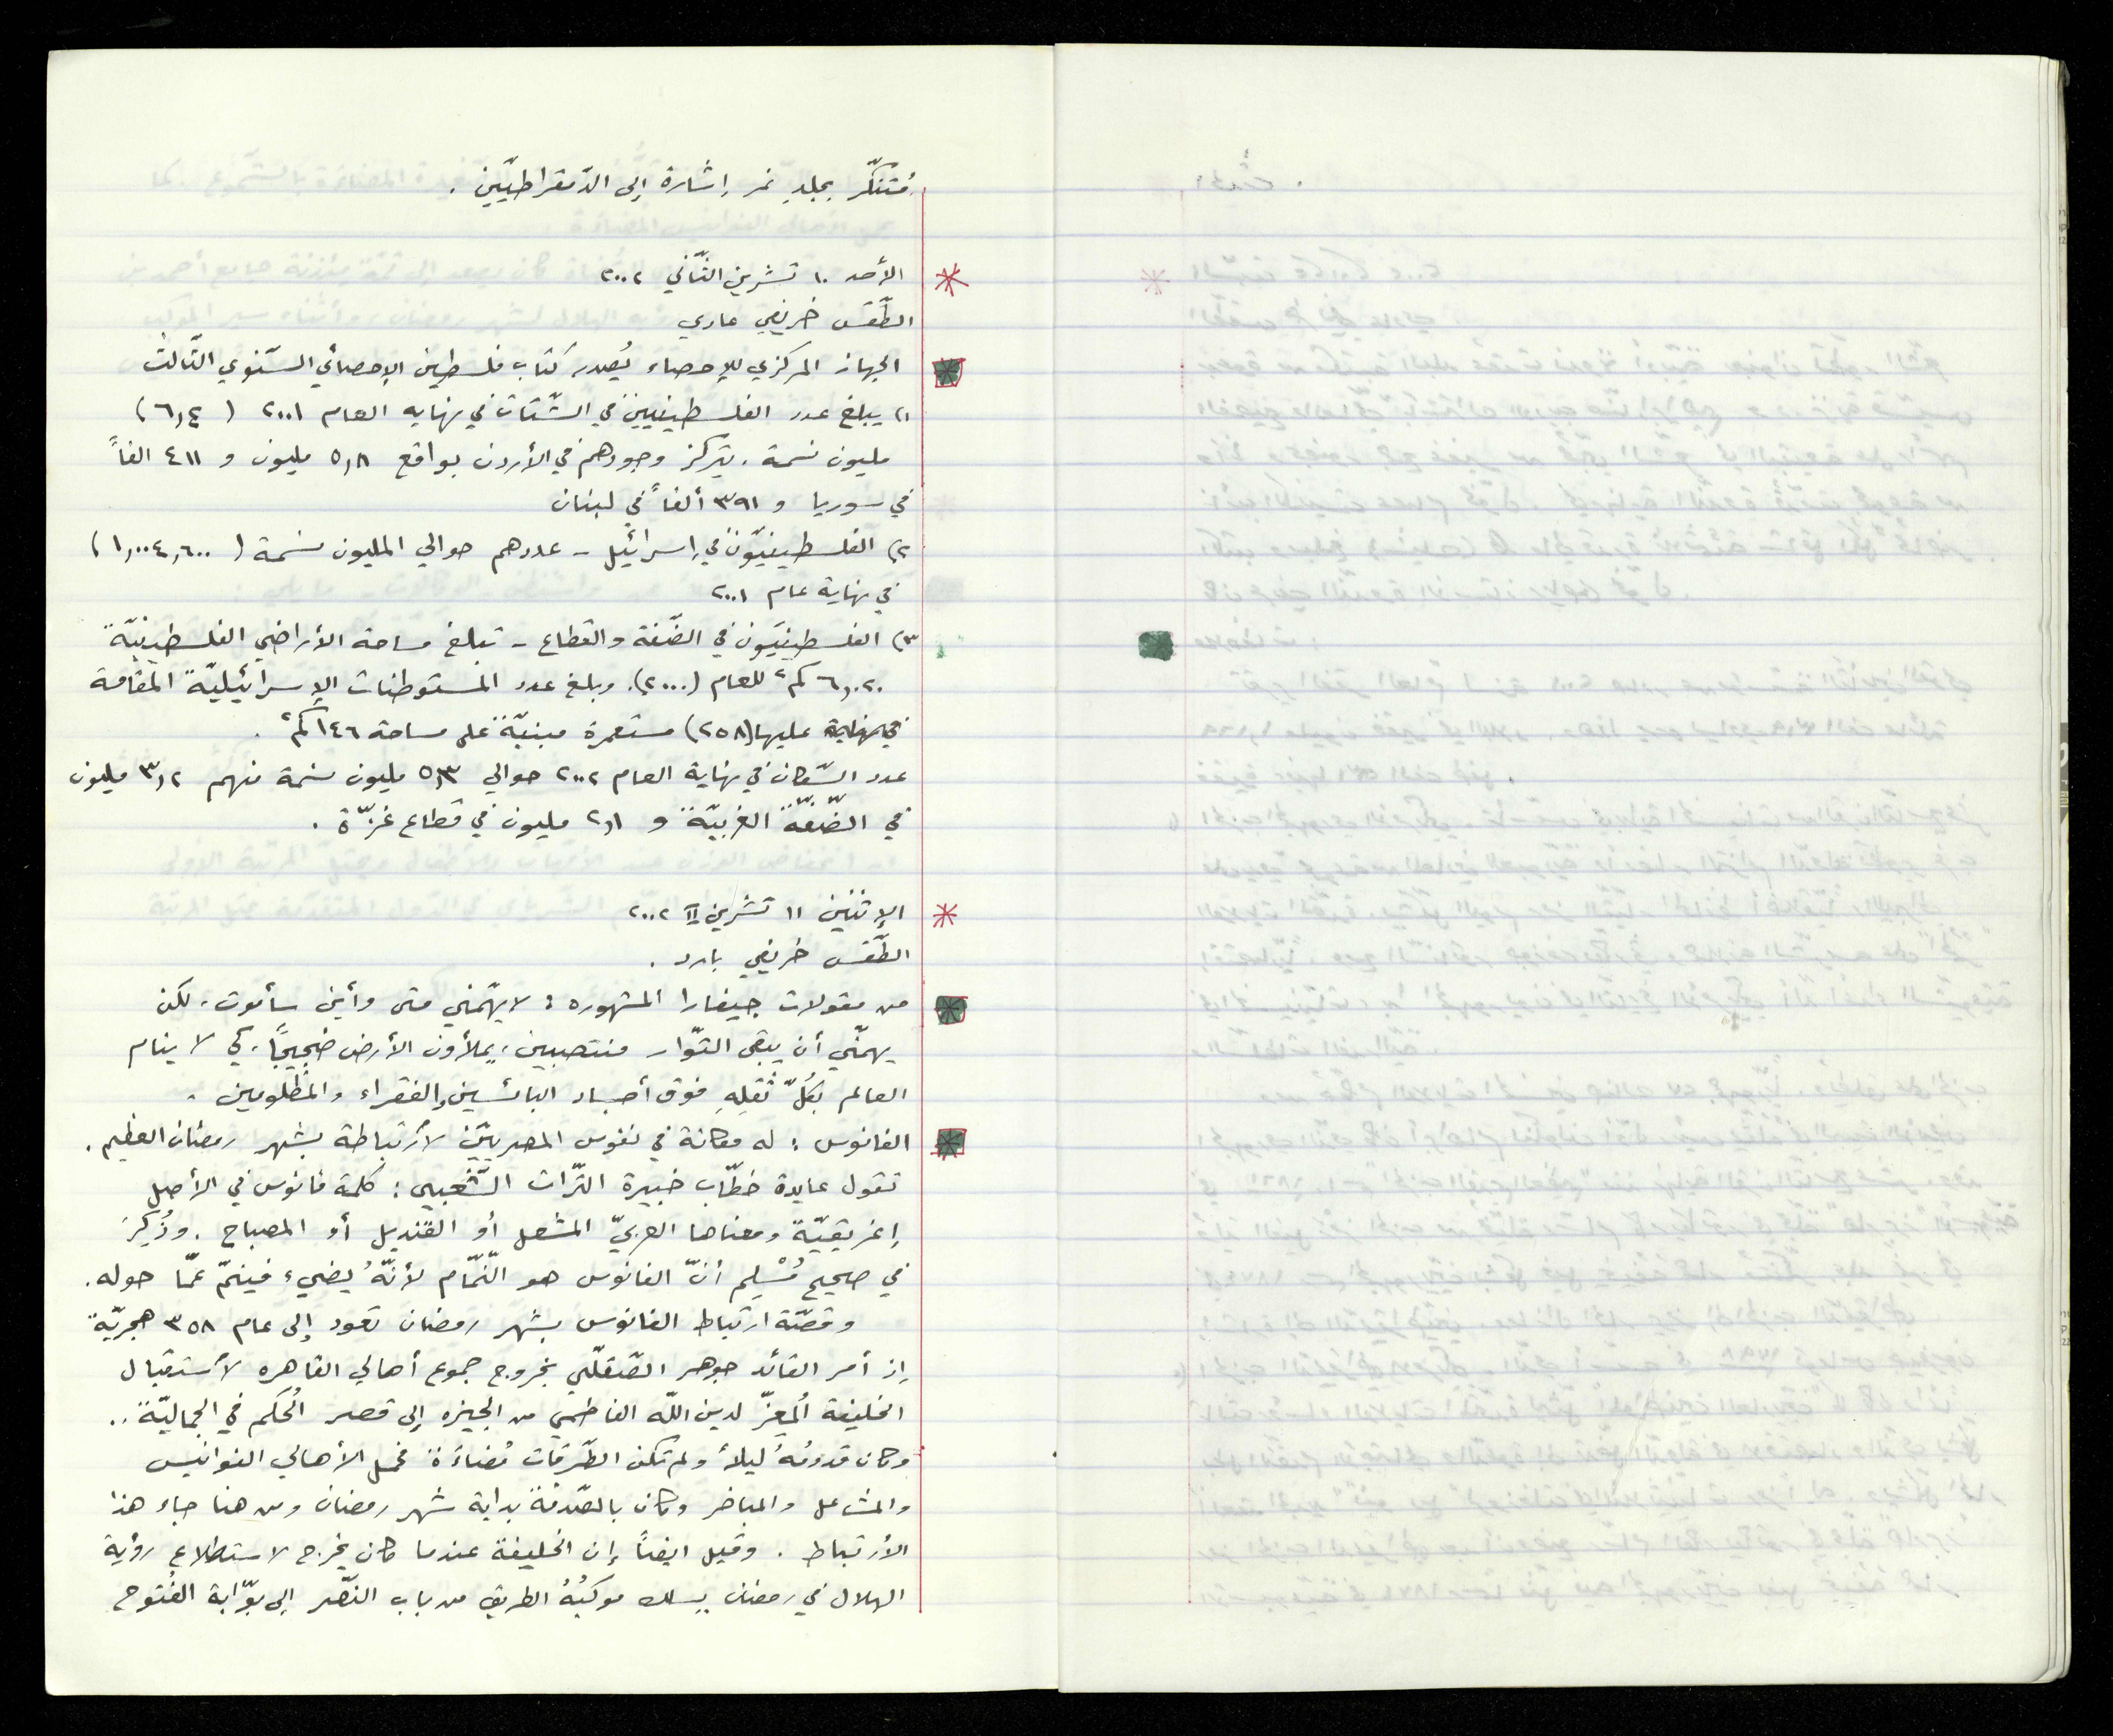 مُتنكّر بجلدِ نمر إشارة إلى الدّمقراطيّين .
الأحد ١٠ تشرين الثّاني ٢٠٠٢
الطّقس خريفي عادي
الجهاز المركزي للإحصاء يُصدر كتاب فلسطين الإحصائي السّنوي الثّالث
١) يبلغ عدد الفلسطينيين في الشّتات في نهايه العام ٢٠٠١ ( ٦,٤ )
مليون نسمة . يتركز وجودهم في الأردن بواقع ٥,٨ مليون و ٤١١ الفاً
في سوريا و ٣٩١ ألفاً في لبنان
٢) الفلسطينيّون في إسرائيل - عددهم حوالي المليون نسمة ( ١,٠٠٤,٦٠٠ )
في نهاية عام ٢٠٠١
٣) الفلسطينيّون في الضّفة والقطاع - تبلغ مساحة الأراضي الفلسطينيّة
٦,٠٢٠ كم٢ للعام (٢٠٠٠). وبلغ عدد المستوطنات الإسرائيليّة المقامة
عليها (٢٥٨) مستعمرة مبنيّة على مساحة ١٤٦ كم٢ .
عدد السّكان في نهاية العام ٢٠٠٢ حوالي ٥,٣ مليون نسمة منهم ٣,٢ مليون
في الضّفّة الغربيّة و ٢,١ مليون في قطاع غزّة .
الإثنين ١١ تشرين II ٢٠٠٢
الطّقس خريفي بارد .
من مقولات جيفارا المشهوره : لا يهّمني متى وأين سأموت ، لكن
يهمّني أن يبقى الثوّار منتصبين ، يملأون الأرض ضجيجًا ، كي لا ينام
العالم بكُلّ ثقلِهِ فوق أجساد البائسين والفقراء والمظلومين .
الفانوس : له مكانة في نفوس المصريّين لأرتباطة بشهر رمضان العظيم .
تقول عايدة خطّاب خبيرة التّراث الشّعبي : كلمة فانوس في الأصل
إغريقيّة ومعناها العربيّ المشعل أو القنديل أو المصباح . وذُكِرَ
في صحيح مُسْلِم أنّ الفانوس هو النّمّام لأنّهُ يضيء فينمّ عمّا حوله .
وقصّة ارتباط الفانوس بشهر رمضان تعود إلى عام ٣٥٨ هجريّة
إذ أمر القائد جوهر الصّقلّي بخروج جموع أهالي القاهره لأستقبال
الخليفة المُعِزّ لدين اللّه الفاطمي من الجيزه إلى قصر الحُكم في الجماليّة ..
وكان قدومُهُ ليلاً ولم تكن الطّرقات مُضاءَة فحمل الأهالي الفوانيس
والمشاعل والمباخر وكان بالصّدفة بداية شهر رمضان ومن هنا جاء هذا
الأرتباط . وقيل ايضاً إن الخليفة عندما كان يخرج لاستطلاع رؤية
الهلال في رمضان يسلك موكبُهُ الطريق من باب النّصر إلى بوّابة الفُتوح